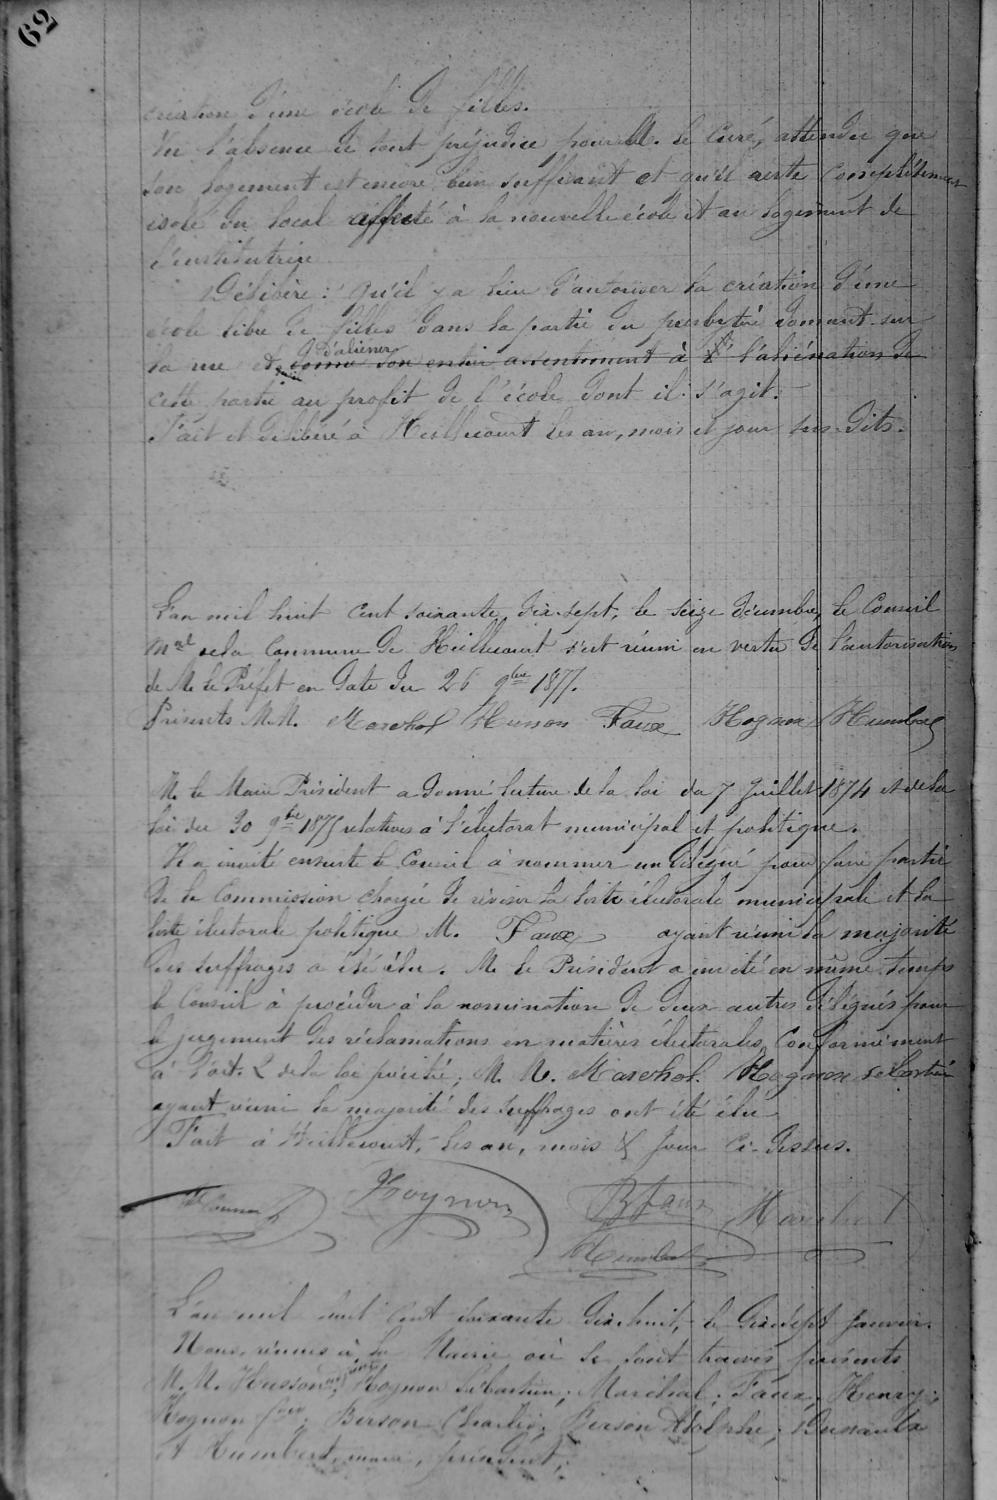 62
création d'une école de filles.
Vu l'absence de tout préjudice pour M. le Curé, attendu que
son logement est encore bien suffisant et qu'il reste complètement
isolé du local affecté à la nouvelle école et au logement de
l'institutrice
Délibère: qu'il y a lieu d'autoriser la création d'une
école libre de filles dans la partie du presbytère donnant sur
d'aliéner
la rue et donne son entier assentiment à l'aliénation de
cette partie au profit de l'école dont il s'agit.
Fait et délibéré à Heillecourt les an, mois et jour sus-dits.
L'an mil huit cent soixante dix-sept, le seize décembre, le Conseil
Mal de la Commune de Heillecourt s'est réuni en vertu de l'autorisation
de M. le Préfet en date du 26 9bre 1877.
Présents M.M. Marchal Husson Faux Hognon Humbert
M. le Maire Président a donné lecture de la loi du 7 Juillet 1874 et de la
loi du 30 9bre 1875 relatives à l'électorat municipal et politique.
Il a invité ensuite le Conseil à nommer un délégué pour faire partie
de la Commission chargée de réviser la liste électorale municipale et la
liste électorale politique M. Faux ayant réuni la majorité
des suffrages a été élu. M. le Président a invité en même temps
le Conseil à procéder à la nomination de deux autres délégués pour
le jugement des réclamations en matières électorales, Conformément
à l'art. 2 de la loi précitée, M. M. Marchal. Hognon Sébastien
ayant réuni la majorité des suffrages ont été élu
Fait à Heillecourt, les an, mois & jour ci-dessus.
Husson Hognon B Faux Marchal
Humbert
L'an mil huit cent soixante dix-huit, le dix-sept janvier.
Nous, réunis à la Mairie où se sont trouvés présents
M. M. Husson, Hognon Sébastien; Maréchal; Faux; Henry;
Hognon; Berson Charles; Berson Adolphe;
et Humbert, maire, président;